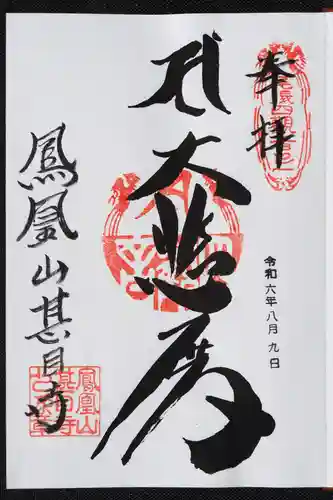 奉拝
令和六年八月九日
大悲殿
鳳凰山甚目寺
鳳凰山
甚目寺